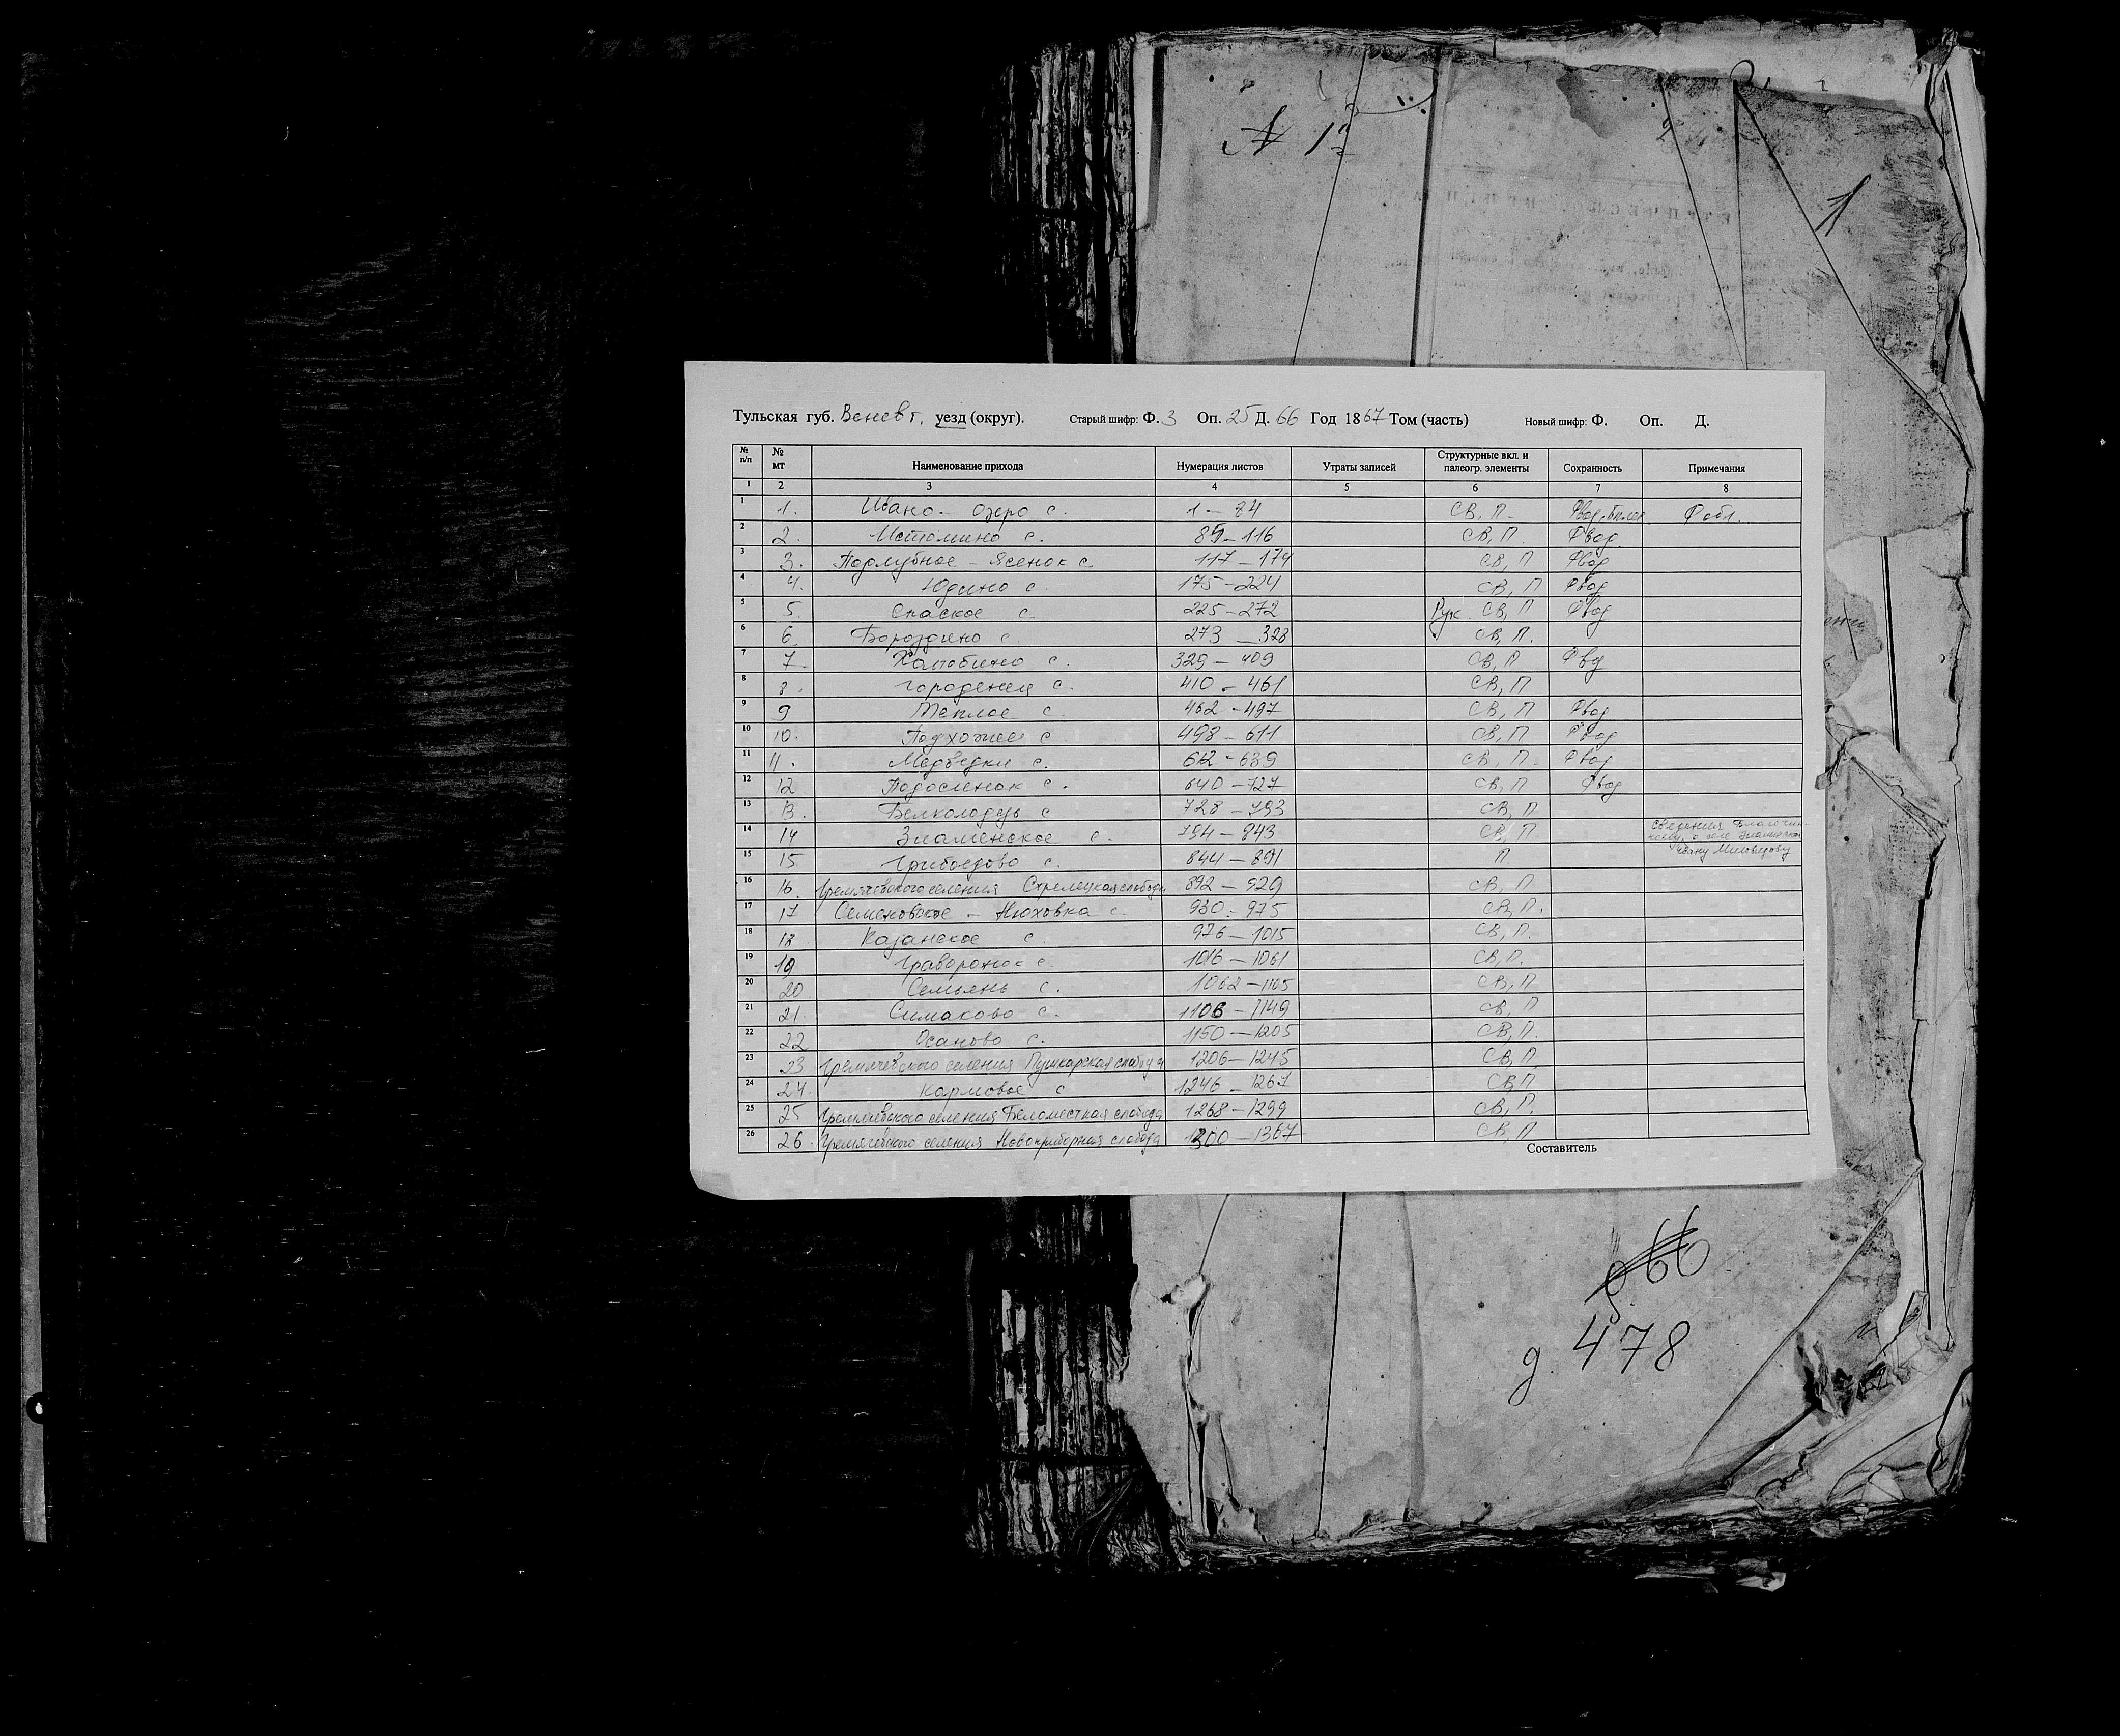 № 1
1
Тульская губ. Венев г. уезд (округ). Старый шифр: Ф. 3 Оп. 25 Д. 66 Год 1867 Том (часть) Новый шифр: Ф. Оп. Д.
№ п/п № мт Наименование прихода Нумерация листов Утраты записей Структурные вкл. и палеогр. элементы Сохранность Примечания
1 2 3 4 5 6 7 8
1 1. Ивано-Озеро с. 1 - 84 СВ, П. Ф обл.
2 2. Истомино с. 85 - 116 СВ, П. Фвод
3 3. Подлубное - Ясенок с 117 - 174 СВ, П Фвод
4 4. Юдино с. 175 - 224 СВ, П Фвод
5 5. Спаское с. 225 - 272 Рук. СВ, П Фвод
6 6. Бороздино с. 273 - 328 СВ, П.
7 7. Хапобино с. 329 - 409 СВ, П Фвд
8 8. Городения с. 410 - 461 СВ, П
9 9 Теплое с. 462 - 497 СВ, П Фвод
10 10. Подхожее с 498 - 611 СВ, П Фвод
11 11. Медведки с. 612 - 639 СВ, П. Фвод
12 12 Подосленок с. 640 - 727 СВ, П Фвод
13 13. Белколодезь с 728 - 793 СВ, П
14 14 Знаменское с. 794 - 843 СВ, П Сведения Благочин-
15 15 Грибоедово с. 844 - 891 П Ивану Миловидову
16 16. Гремячевского селения Стрелецкая слобода 892 - 929 СВ, П
17 17 Семеновское - Нюховка с. 930 - 975 СВ, П.
18 18 Казанское с. 976 - 1015 СВ, П.
19 19 Граворонок с. 1016 - 1061 СВ, П.
20 20 Семьянь с. 1062 - 1105 СВ, П
21 21. Симаково с. 1106 - 1149 СВ, П
22 22 Осаново с. 1150 - 1205 СВ, П.
23 23 Гремячевского селения Пушкарская слобода 1206 - 1245 СВ, П
24 24. Кормовое с 1246 - 1267 СВ, П
25 25 Гремячевского селения Беломестная слобода 1268 - 1299 СВ, П.
26 26. Гремячевского селения Новоприборная слобода 1300 - 1367 СВ, П
Составитель
66
д. 478